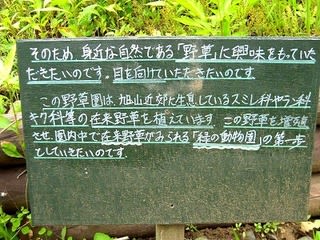 そのため、身近な自然である「野草」に興味をもっていた
だきたいのです。目を向けていただきたいのです
この野草園は、旭山近郊に生息しているスミレ科やラン科
キク科等の在来野草を植えています この野草を増殖
させ、園内中で在来野草がみられる「緑の動物園」の第一歩
としていきたいのです